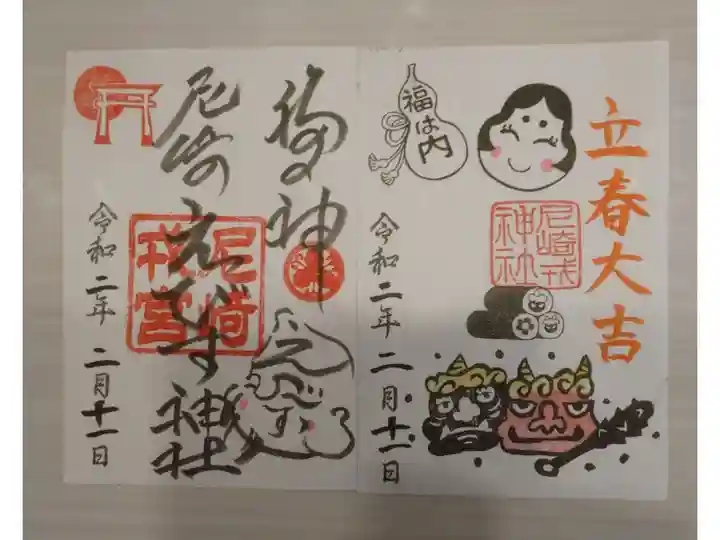 立春大吉
福は内
尼崎戎
神社
令和二年 二月十一日
福の神
えびす
尼崎えびす神社
尼崎
戎宮
令和二年 二月十一日